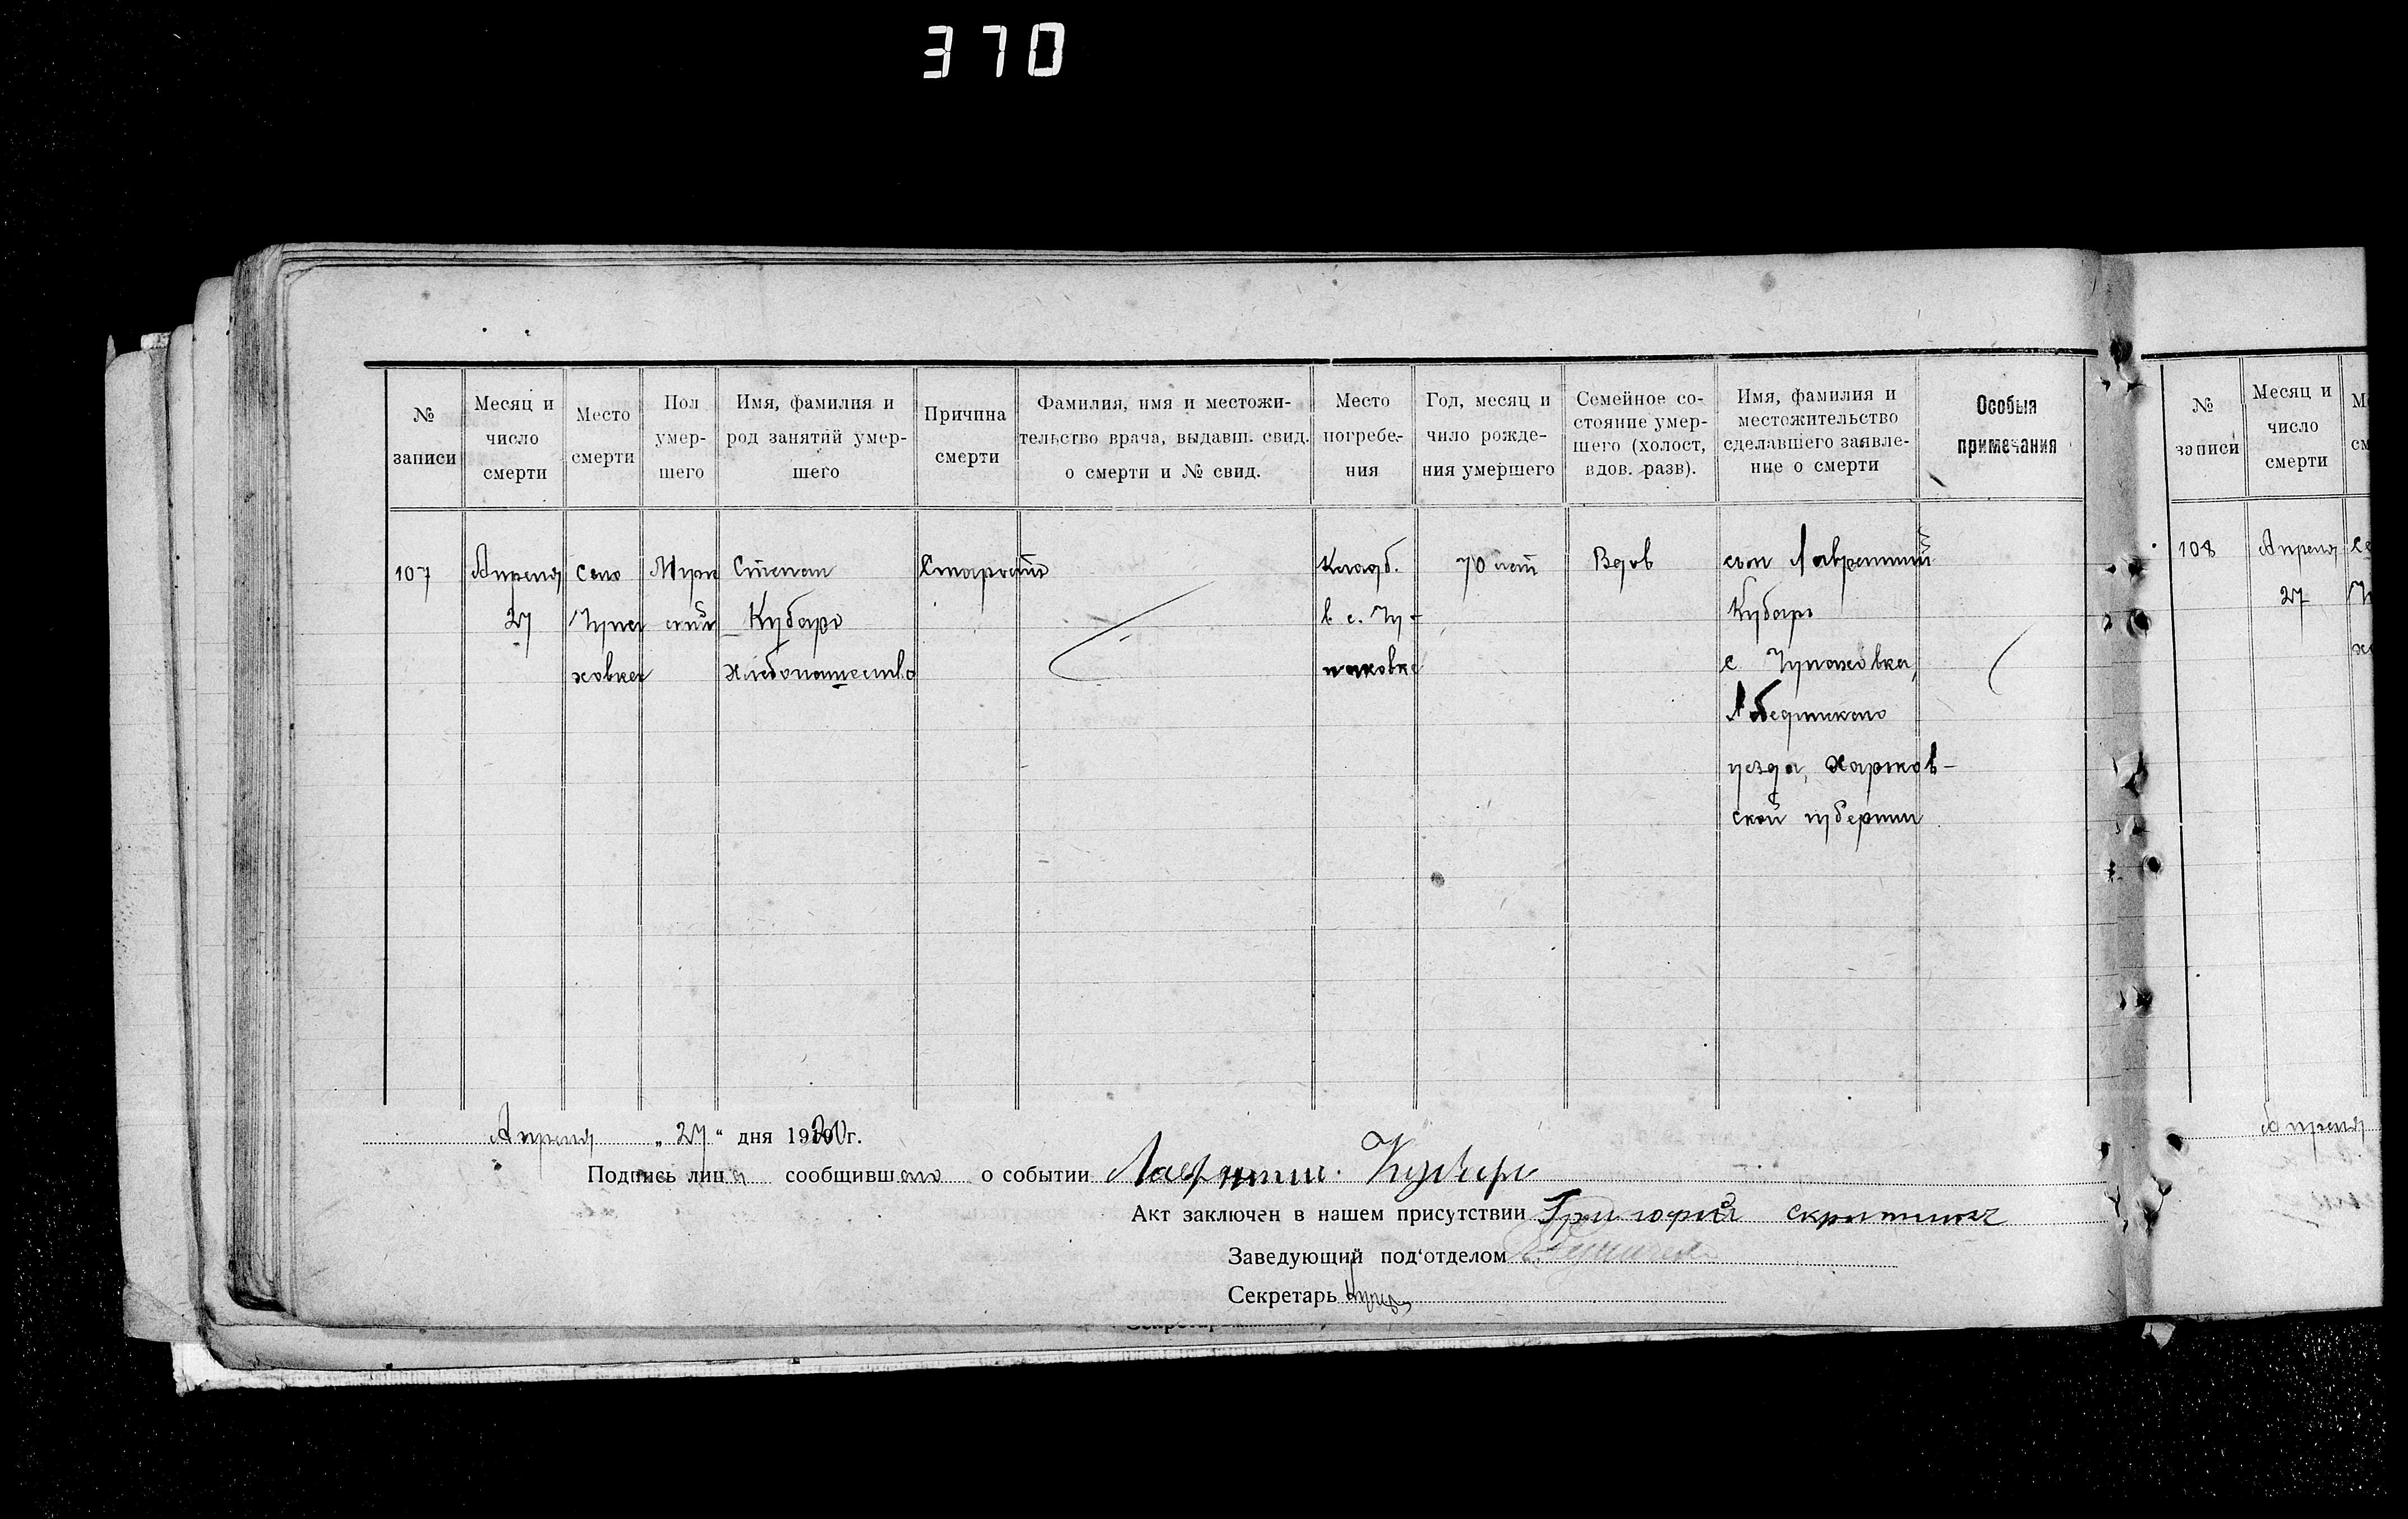 370
№ записи
Месяц и число смерти
Место смерти
Пол умер- шего
Имя, фамилия и род занятий умер- шего
Причина смерти
Фамилия, имя и местожи- тельство врача, выдавш. свид. о смерти и № свид.
Место погребе- ния
Год, месяц и чило рожде- ния умершего
Семейное со- стояние умер- шего (холост, вдов. разв).
Имя, фамилия и местожительство сделавшего заявле- ние о смерти
Особыя примечания
107
Апреля
27
Село
Чупа
ховка
Муж
ский
Степан
Кубарь
хлебопашество
Старость
Кладб.
в с. Чу-
паховке
70 лет
Вдов
сын Лаврентий
Кубарь
с Чупаховка,
Лебединского
уезда, Харьков-
ской губернии
Апреля „ 27 “ дня 1920 г.
Подпись лица сообщившаго о событии Кубарь
Акт заключен в нашем присутствии Григорий
Заведующий под‘отделом
Секретарь
№ записи
Месяц и число смерти
108
Апреля
27
Апреля